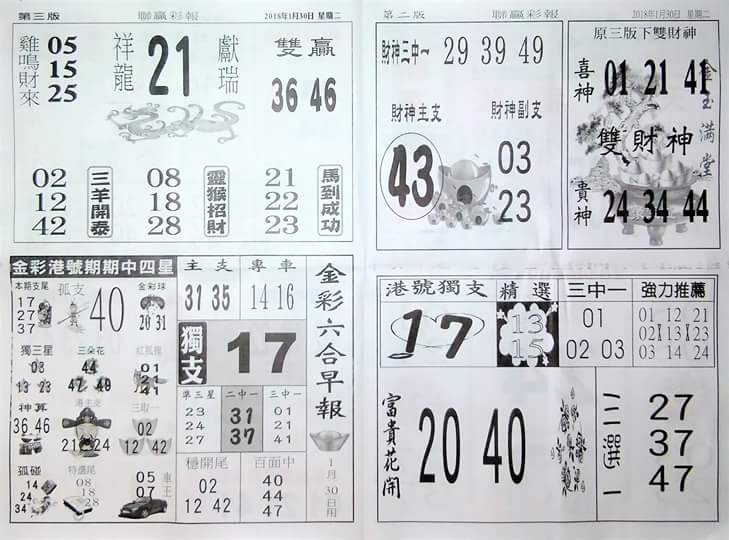 第三版
聯贏彩報
2018年1月30日 星期二
雞鳴財來
05
15
25
祥龍
21
獻瑞
雙贏
36 46
02
12
42
三羊開泰
08
18
28
靈猴招財
21
22
23
馬到成功
金彩港號期期中四星
本期支尾
17
27
37
孤支
40
金彩球
20 31
獨三星
03
13 23
三朵花
44
47 49
紅鳳凰
01
21
41
神算
36 46
港主支
21 24
三取一
02
12 42
孤碰
14
24
34
特選尾
08
18
28
05
07
車王
主支
31 35
專車
14 16
獨支
17
準三星
23
24
27
二中一
31
37
三中一
01
21
41
穩開尾
02
12 42
百面中
40
44
47
金彩六合早報
1月30日用
第二版
聯贏彩報
2018年1月30日 星期二
財神三中一
29 39 49
財神主支
43
財神副支
03
23
原三版下雙財神
喜神
01 21 41
雙財神
貴神
24 34 44
金玉滿堂
港號獨支
17
精選
13
15
三中一
01
02 03
強力推薦
01 12 21
02 13 23
03 14 24
富貴花開
20 40
三選一
27
37
47